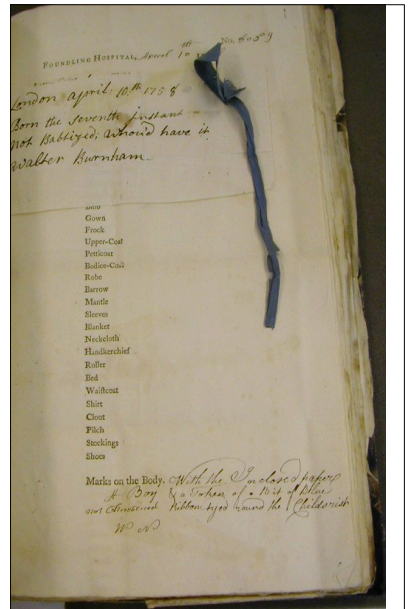 FOUNDLING HOSPITAL, April 10 th
No. 8059
London april 10.th 1758
Born the Seventh Instant
Not Babtized; whould have it
Walter Burnham
Gown
Frock
Upper-Coat
Petticoat
Bodice-Coat
Robe
Barrow
Mantle
Sleeves
Blanket
Neckcloth
Handkerchief
Roller
Bed
Waistcoat
Shirt
Clout
Pilch
Stockings
Shoes
Marks on the Body. With the Inclosed paper
A Boy & a Token of a Bit of Blue
not Christened Ribbon tyed round the Childs